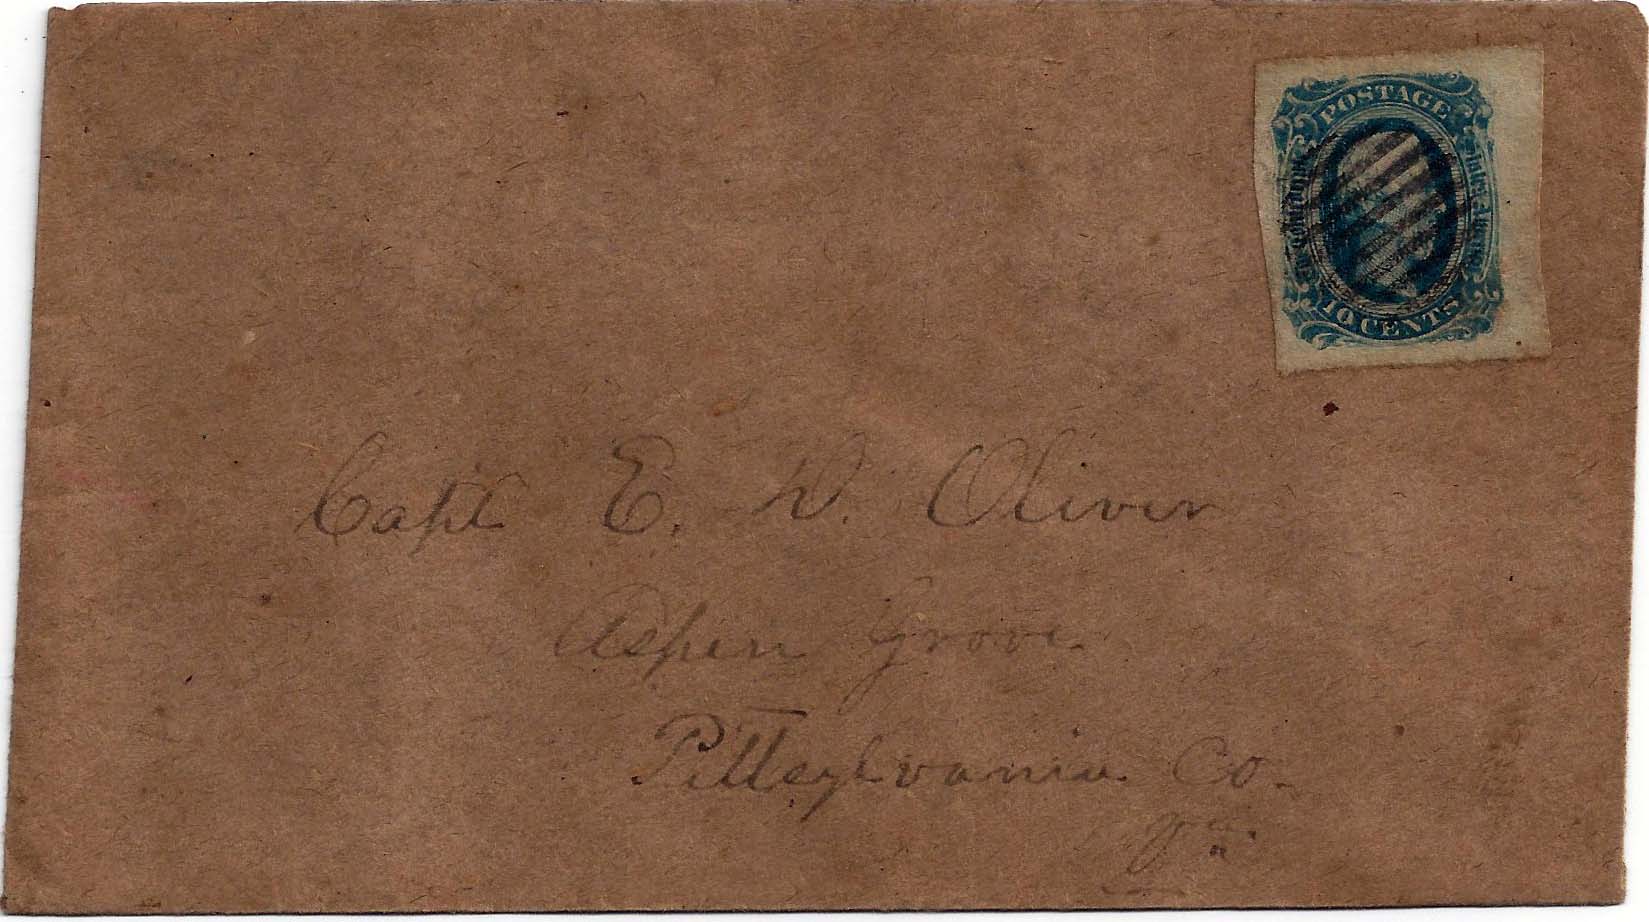 POSTAGE
The Confederate
States of America
10 CENTS
Capt E. D. Oliver
Aspen Grove
Pittsylvania Co.
Va.